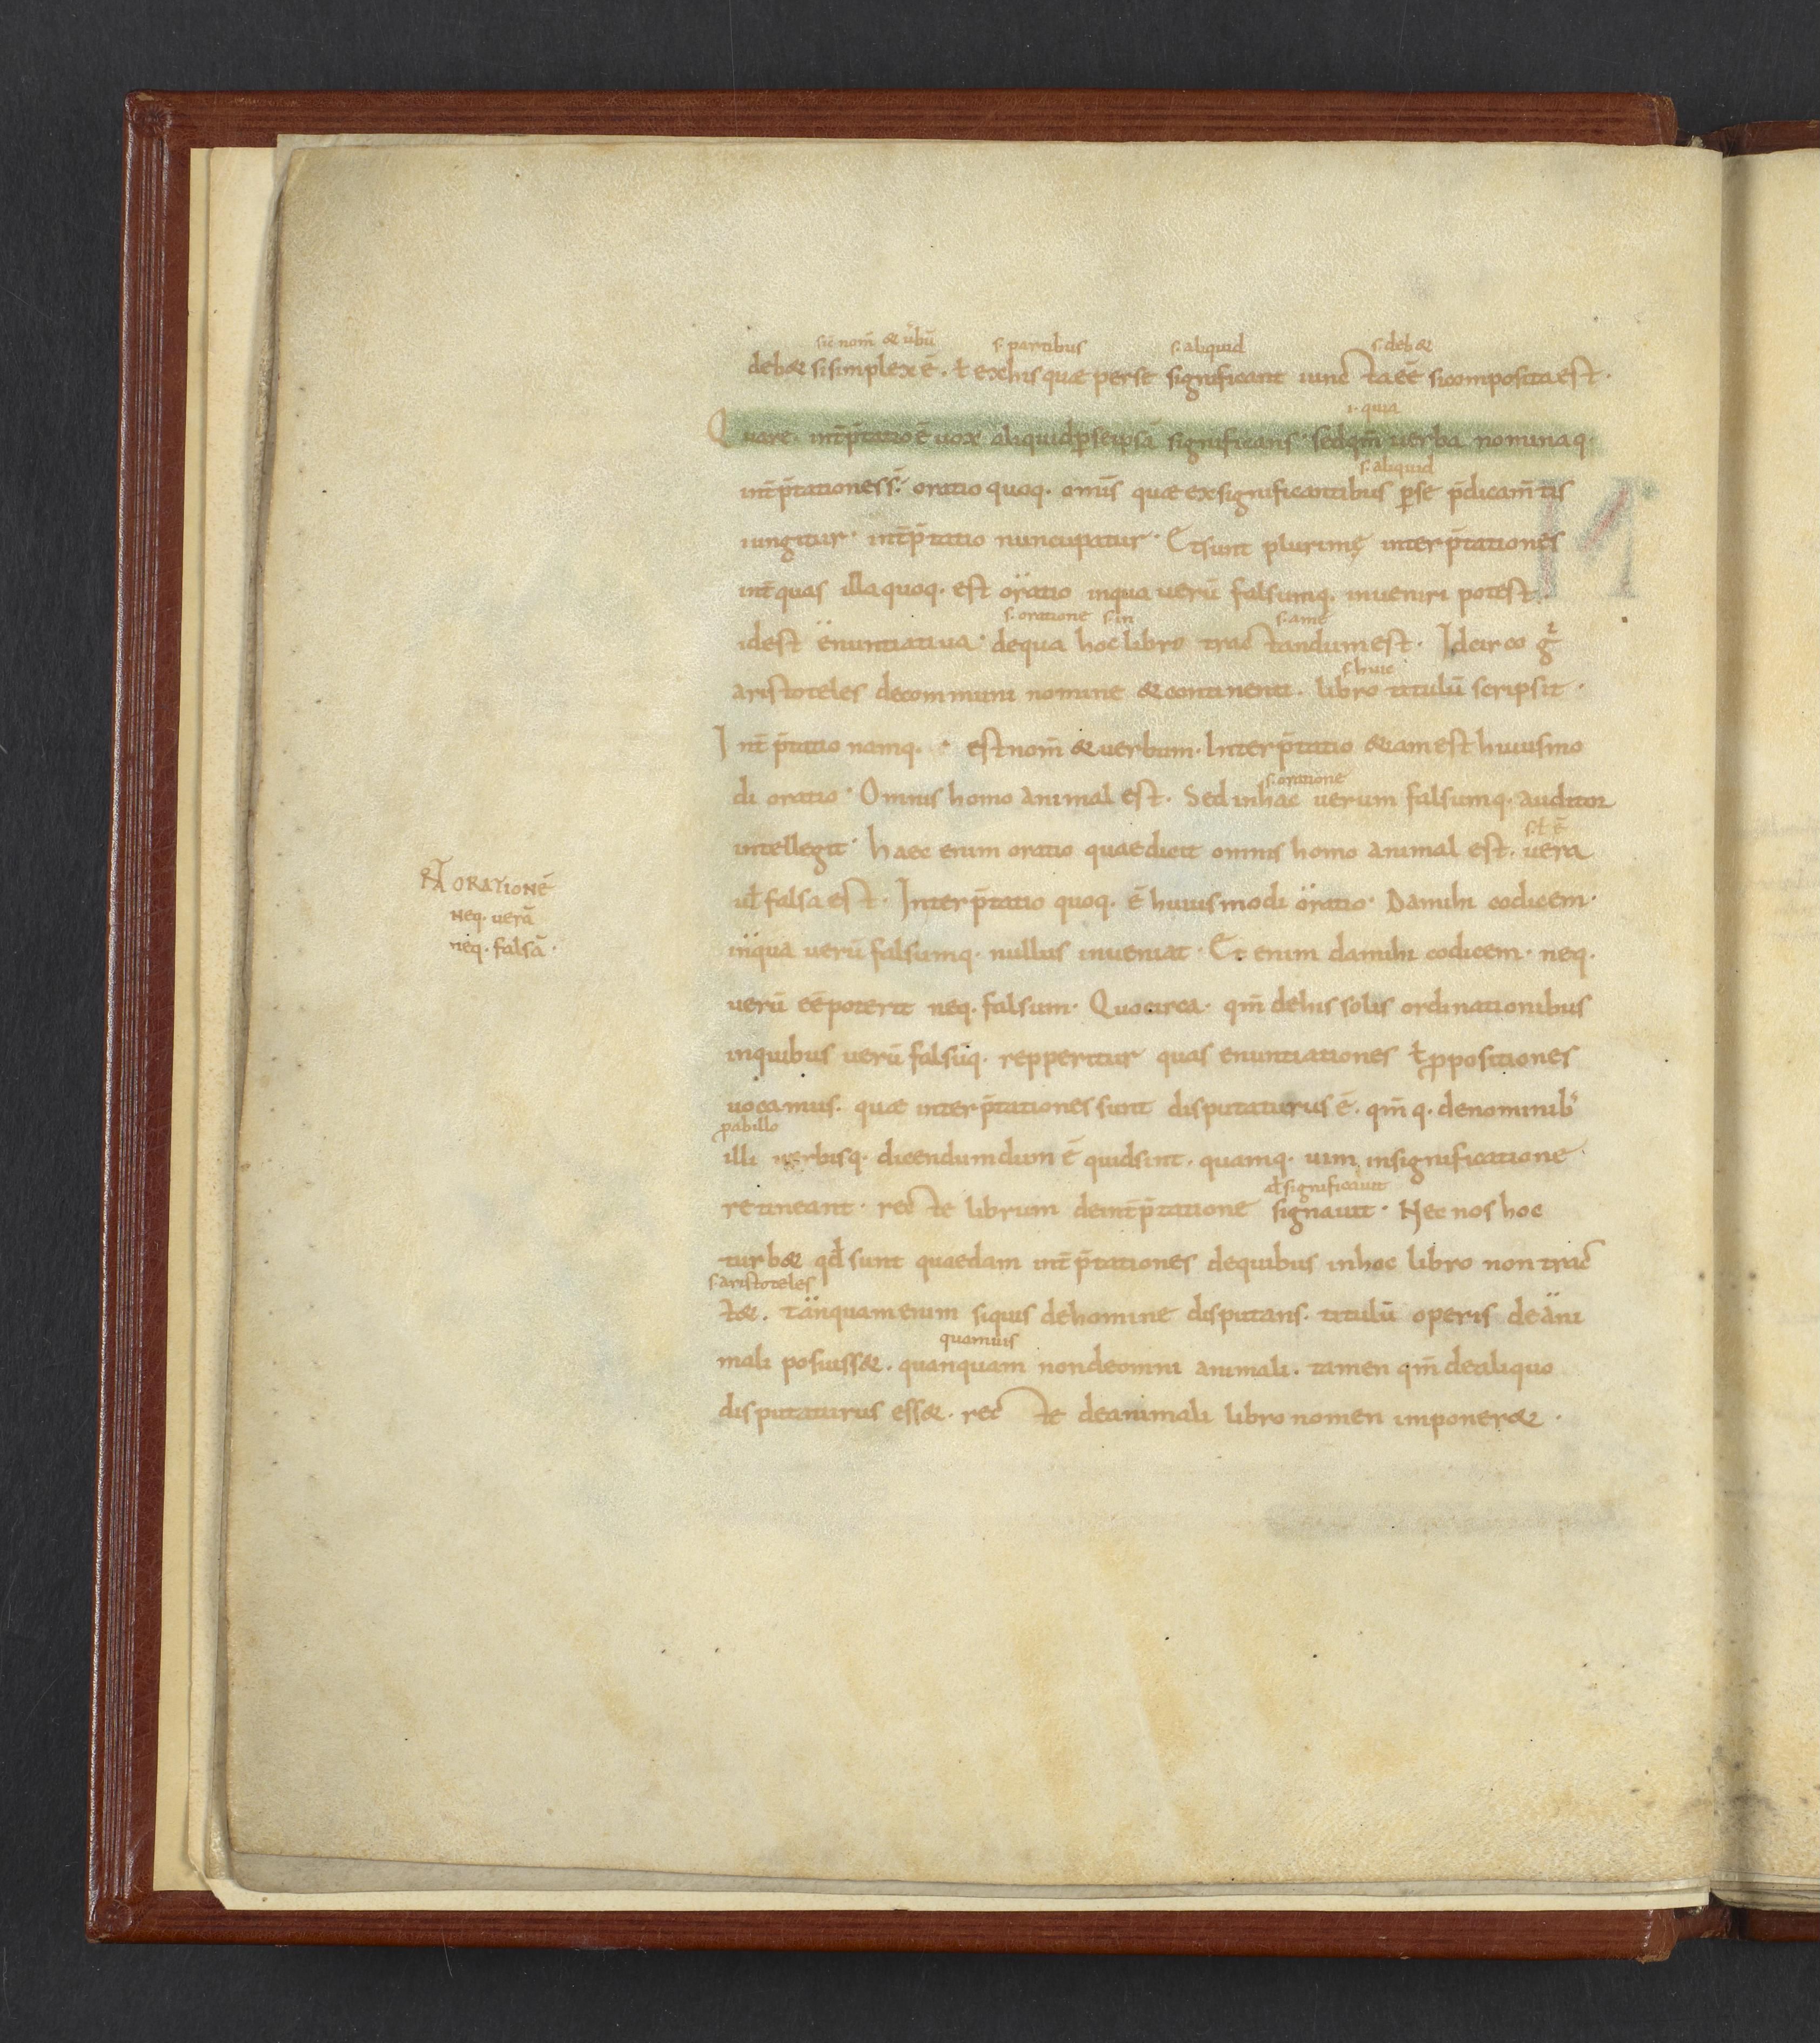 sic nom̄ & u̅bū s. partibus s. aliquid s. deb&
deb& si simplex ē. ł ex his quae per se significant iuncta eē si composita est.
i. quia
Quare. int̄p̄tatio ē uox aliquid p̱ se ipsā significans. sed qm̄ uerba nomina q.
s. aliquid
int̄p̄tationes s̄. oratio quoq. omīs quae ex significantibus p̱se p̄dicam̄tis
iungitur. int̄p̄tatio nuncupatur. Et sunt plurimę interp̄tationes
int̄ quas illa quoq. est oratio in qua uerū falsumq. inueniri potest.
s. oratione s. in s. a me
id est enuntiatiua. de qua hoc libro tractandum est. Idcirco g̃
s. huic
aristoteles de communi nomine & continenti. libro titulū scripsit.
Int̄p̄tatio namq. est nom̄ & uerbum. Interp̄tatio &iam est huiusmo
s. oratione
di oratio. Omnis homo animal est. Sed in hac uerum falsumq. auditor
s. ł ē
intellegit. haec enim oratio quae dicit omnis homo animal est. uera
uł falsa est. Interp̄tatio quoq. ē huiusmodi oratio. Da mihi codicem.
in qua uerū falsumq. nullus inueniat. Et enim da mihi codicem. neq.
uerū eē poterit neq. falsum. Quocirca. qm̄ de his solis ordinationibus
in quibus uerū falsūq. repperitur quas enuntiationes ł ꝓpositiones
uocamus. quae interp̄tationes sunt disputaturus ē. qm̄ q. de nominib'
ꝓ ab illo
illi uerbisq. dicendum dum ē quid sint. quamq. uim in significatione
ał significauit
retineant. recte librum de int̄p̄tatione signauit. Nec nos hoc
turb& qd̄ sunt quaedam int̄p̄tationes de quibus in hoc libro non trac
s. aristoteles
t&. tanquam enim si quis de homine disputans. titulū operis de ani
quamuis
mali posuiss&. quanquam non de omni animali. tamen qm̄ de aliquo
disputaturus ess&. recte de animali libro nomen imponer&.
ORATIONĒ
Neq. uerā
neq. falsā.